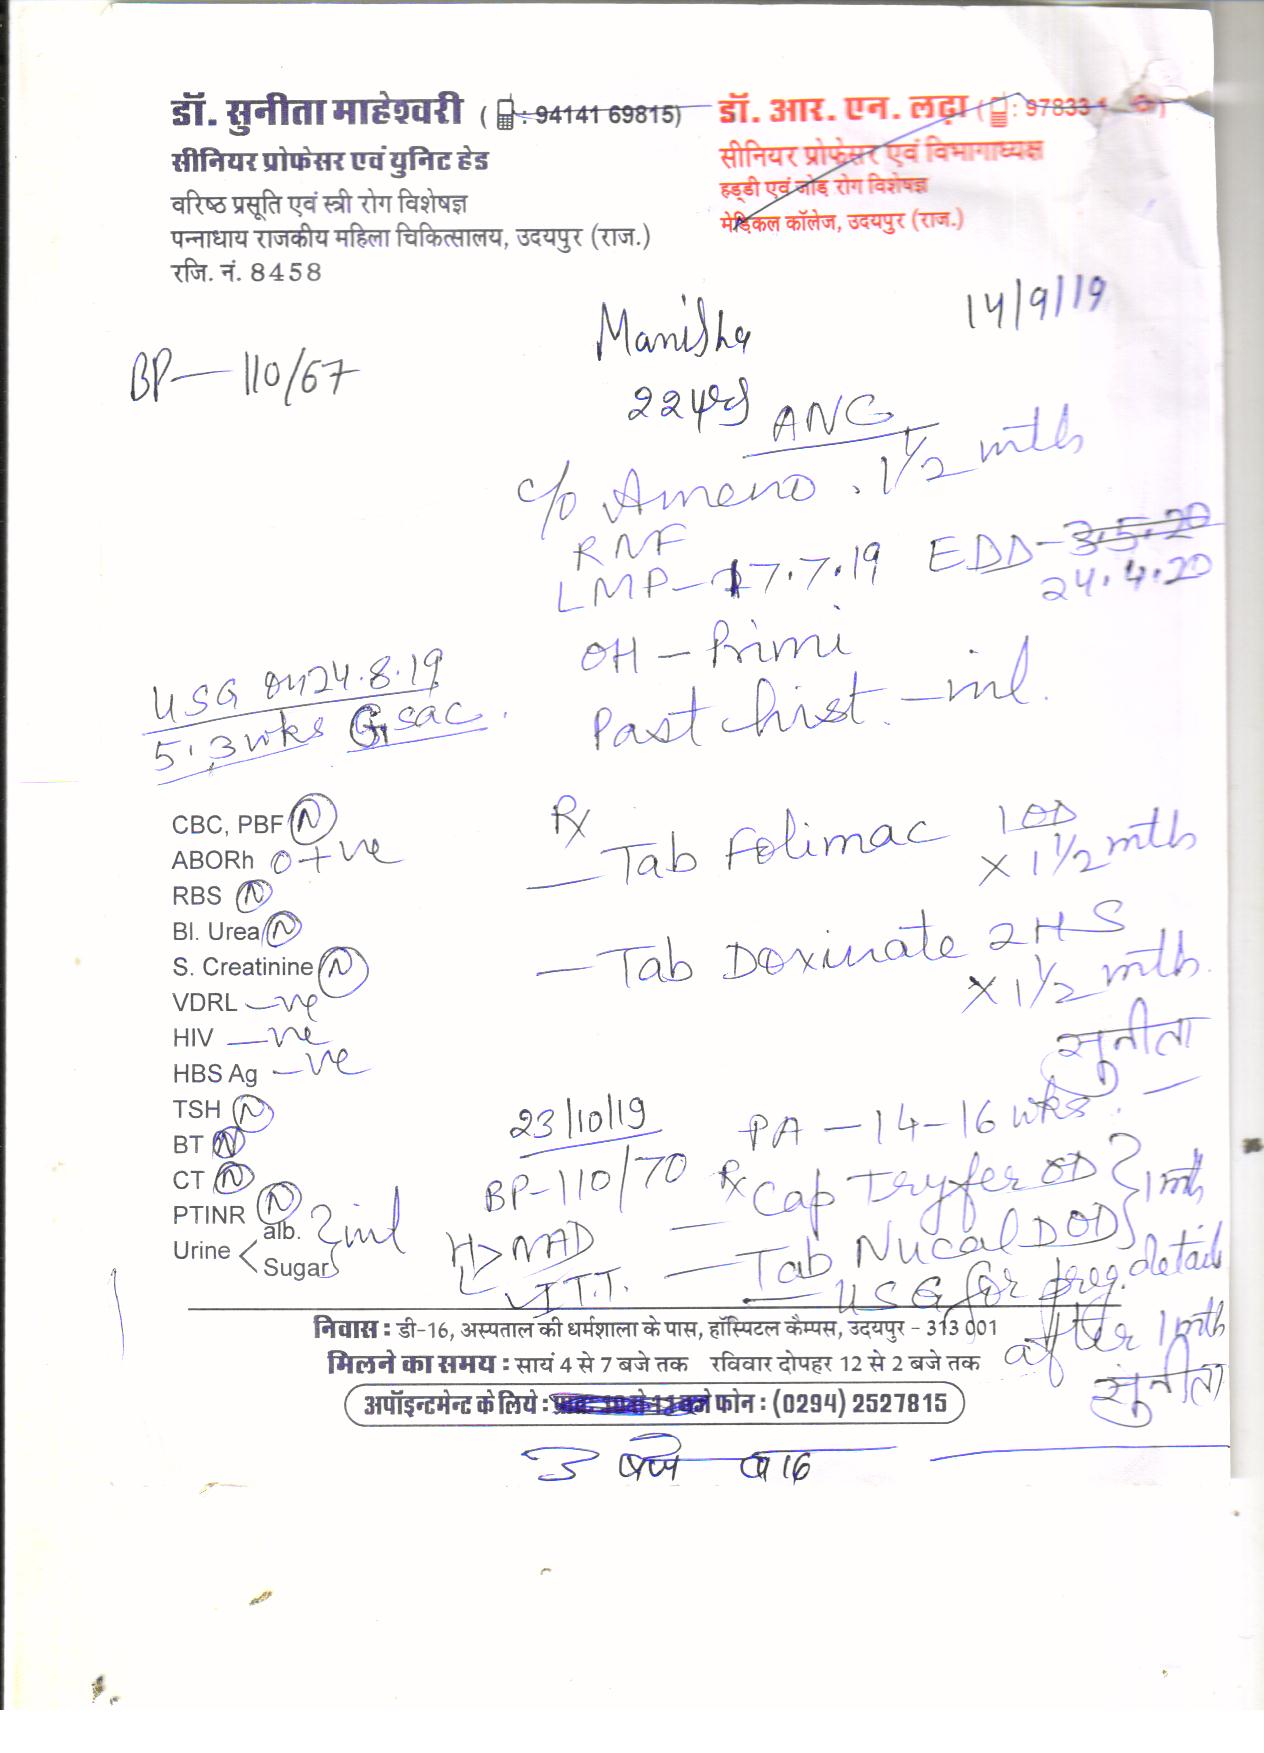 डॉ. सुनीता माहेश्वरी ( : 94141 69815)
सीनियर प्रोफेसर एवं युनिट हेड
वरिष्ठ प्रसूति एवं स्त्री रोग विशेषज्ञ
पन्नाधाय राजकीय महिला चिकित्सालय, उदयपुर (राज.)
रजि. नं. 8458
डॉ. आर. एन. लढ़ा ( : 97833
सीनियर प्रोफेसर एवं विभागाध्यक्ष
हड्डी एवं जोड़ रोग विशेषज्ञ
मेडिकल कॉलेज, उदयपुर (राज.)
14/9/19
Manisha
BP - 110/67
22 yrs
ANC
c/o Ameno. 1 1/2 mths
RMF
LMP - 17.7.19 EDD - 3.5.20
24.4.20
OH - Primi
Past hist. - nil.
USG on 24.8.19
5.3 wks G sac.
CBC, PBF N
ABORh O +ve
RBS N
Bl. Urea N
S. Creatinine N
VDRL -ve
HIV -ve
HBS Ag -ve
TSH N
BT N
CT N
PTINR N
Urine < alb. } nil
Sugar
Rx
- Tab Folimac 1 OD
x 1 1/2 mth
- Tab Doxinate 2 HS
x 1 1/2 mth.
सुनीता
23/10/19
PA - 14-16 wks.
BP - 110/70
Rx Cap Tryfer OD } 1 mth
H> NAD
- Tab Nucal D OD
I T.T.
USG for preg. details
after 1 mth
सुनीता
निवास : डी-16, अस्पताल की धर्मशाला के पास, हॉस्पिटल कैम्पस, उदयपुर - 313 001
मिलने का समय : सायं 4 से 7 बजे तक रविवार दोपहर 12 से 2 बजे तक
अपॉइन्टमेन्ट के लिये : प्रातः 10 से 11 बजे फोन : (0294) 2527815